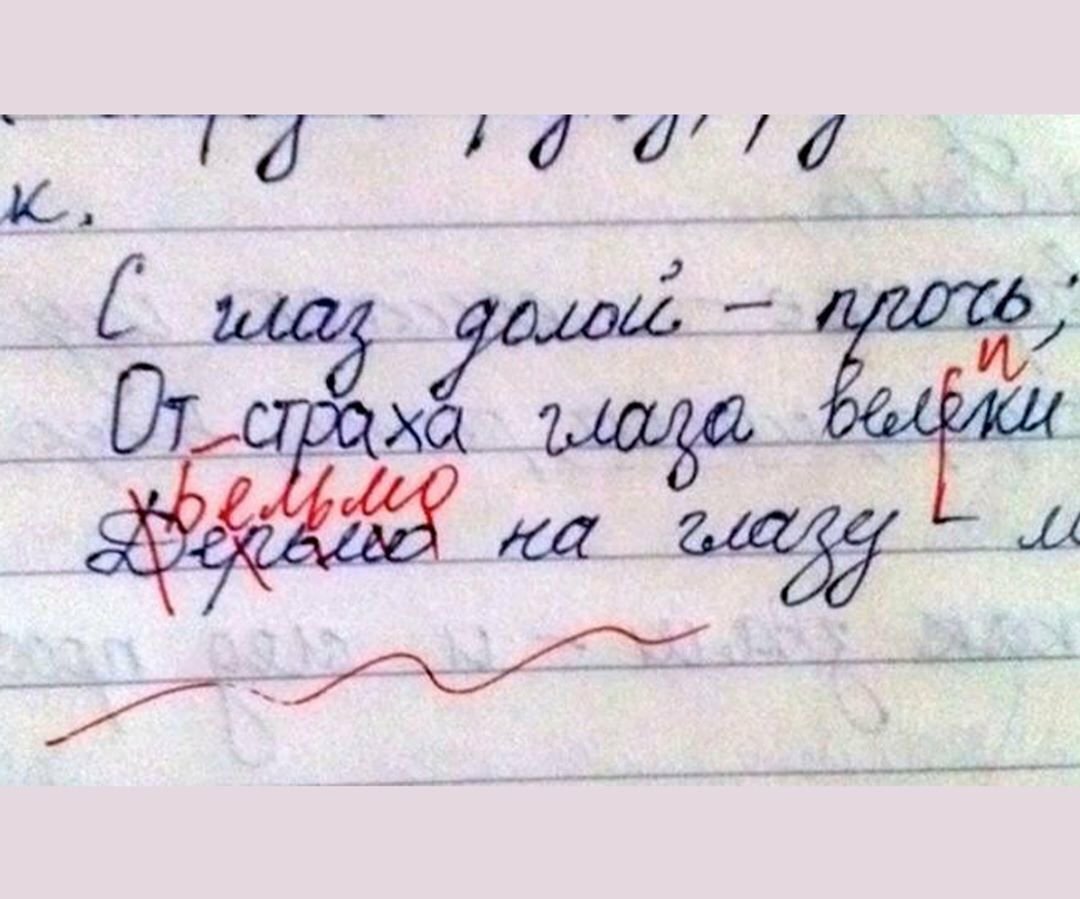 к.
С глаз долой – прочь;
От страха глаза велеки
и
Бельмо
Дерьмо на глазу – м